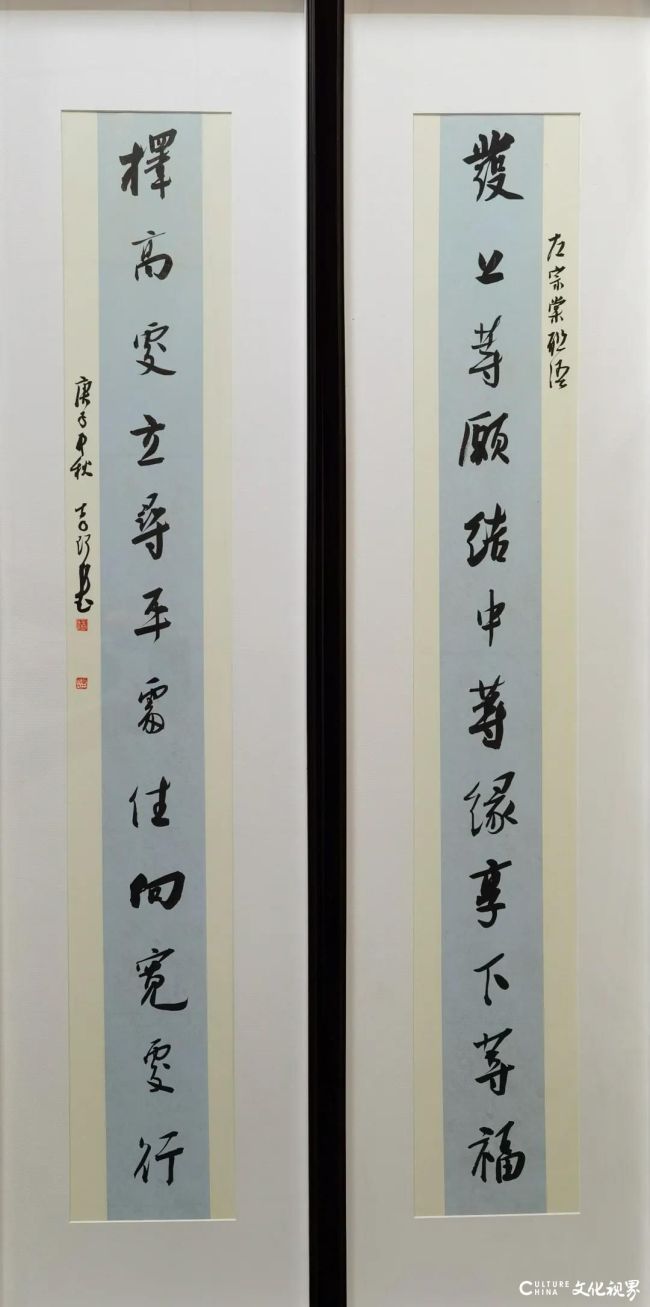 左宗棠聯語
發上等願結中等緣享下等福
擇高處立尋平處住向寬處行
庚子中秋 書
CULTURE
CHINA 文化视界